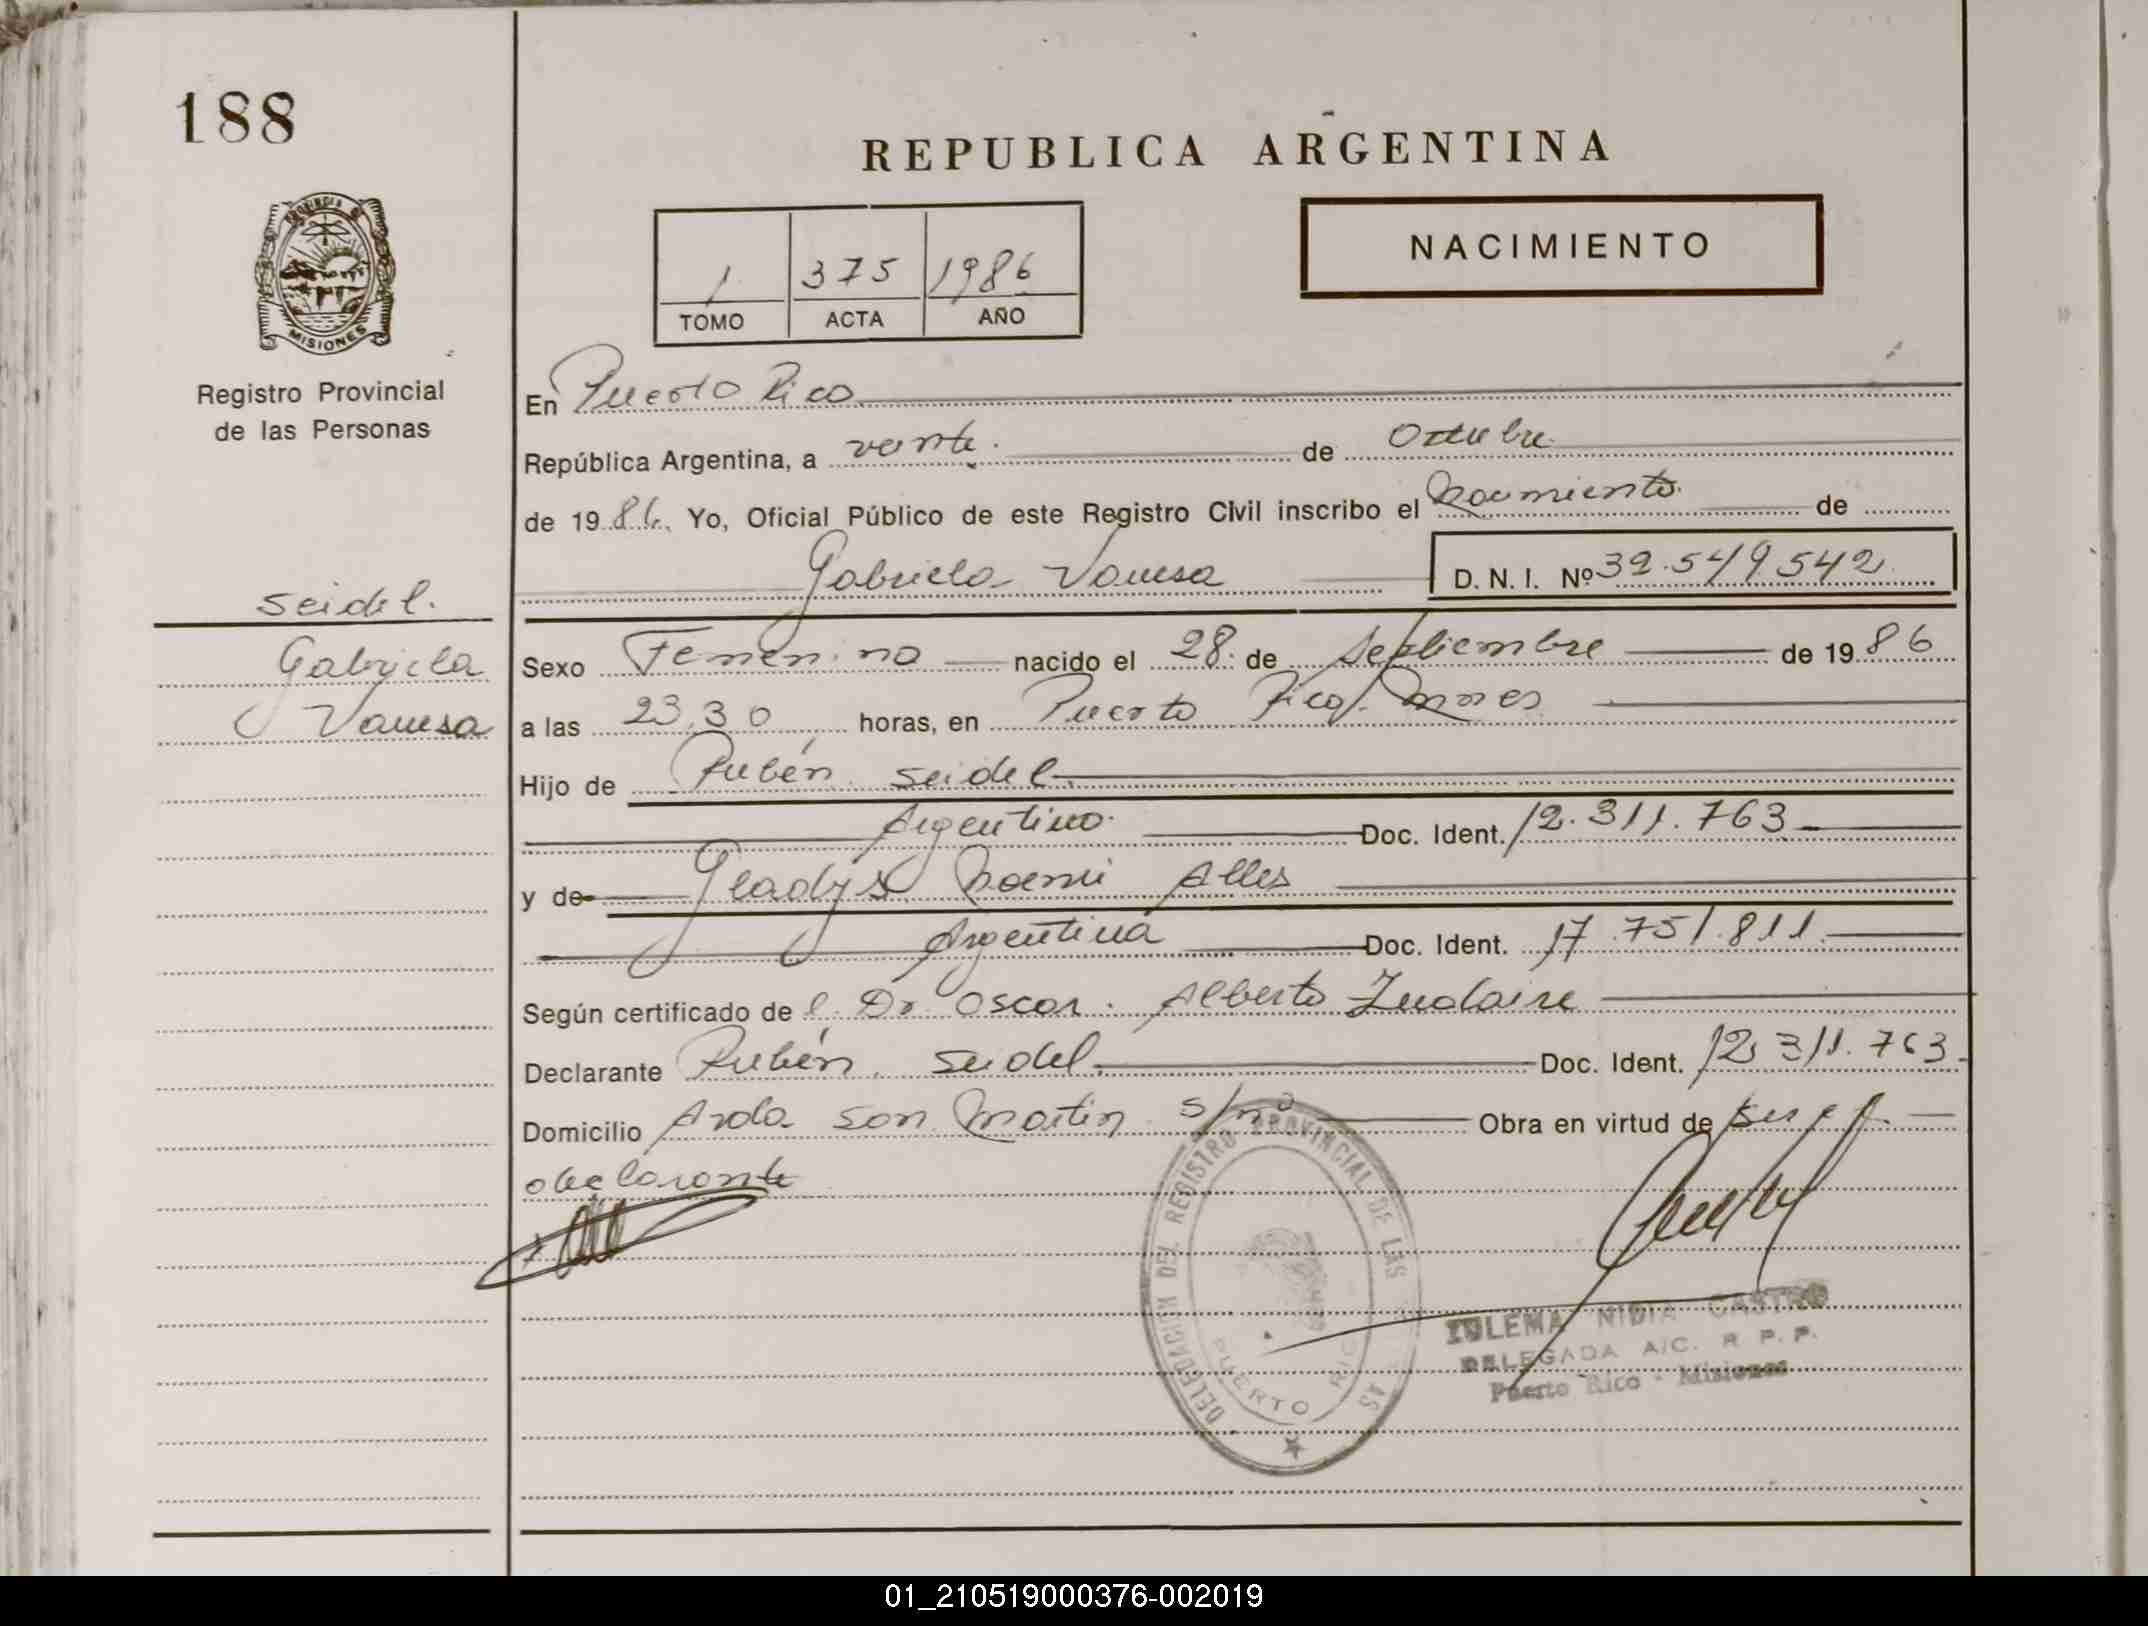 188
REPUBLICA ARGENTINA
PROVINCIA DE
MISIONES
Registro Provincial
de las Personas
1 375 1986
TOMO ACTA AÑO
NACIMIENTO
En Puerto Rico
República Argentina, a veinte. de Octubre
de 1986. Yo, Oficial Público de este Registro Civil inscribo el Nacimiento de
Gabriela Vanesa D. N. I. Nº 32.549542
Seidel.
Gabriela
Vanesa
Sexo Femenino nacido el 28 de Septiembre de 1986
a las 23,30 horas, en Puerto Rico, Mnes
Hijo de Rubén Seidel
Argentino Doc. Ident. 12.311.763
y de Gladys Noemi Alles
Argentina Doc. Ident. 17.751.811
Según certificado de l Dr. Oscar Alberto Zudaire
Declarante Rubén Seidel Doc. Ident. 12.311.763
Domicilio Avda San Martin s/nº Obra en virtud de ser el
declarante
DELEGACION DEL REGISTRO PROVINCIAL DE LAS
PUERTO RICO
NIDIA CASTRO
DELEGADA A/C. R. P. P.
Puerto Rico - Misiones
01_210519000376-002019